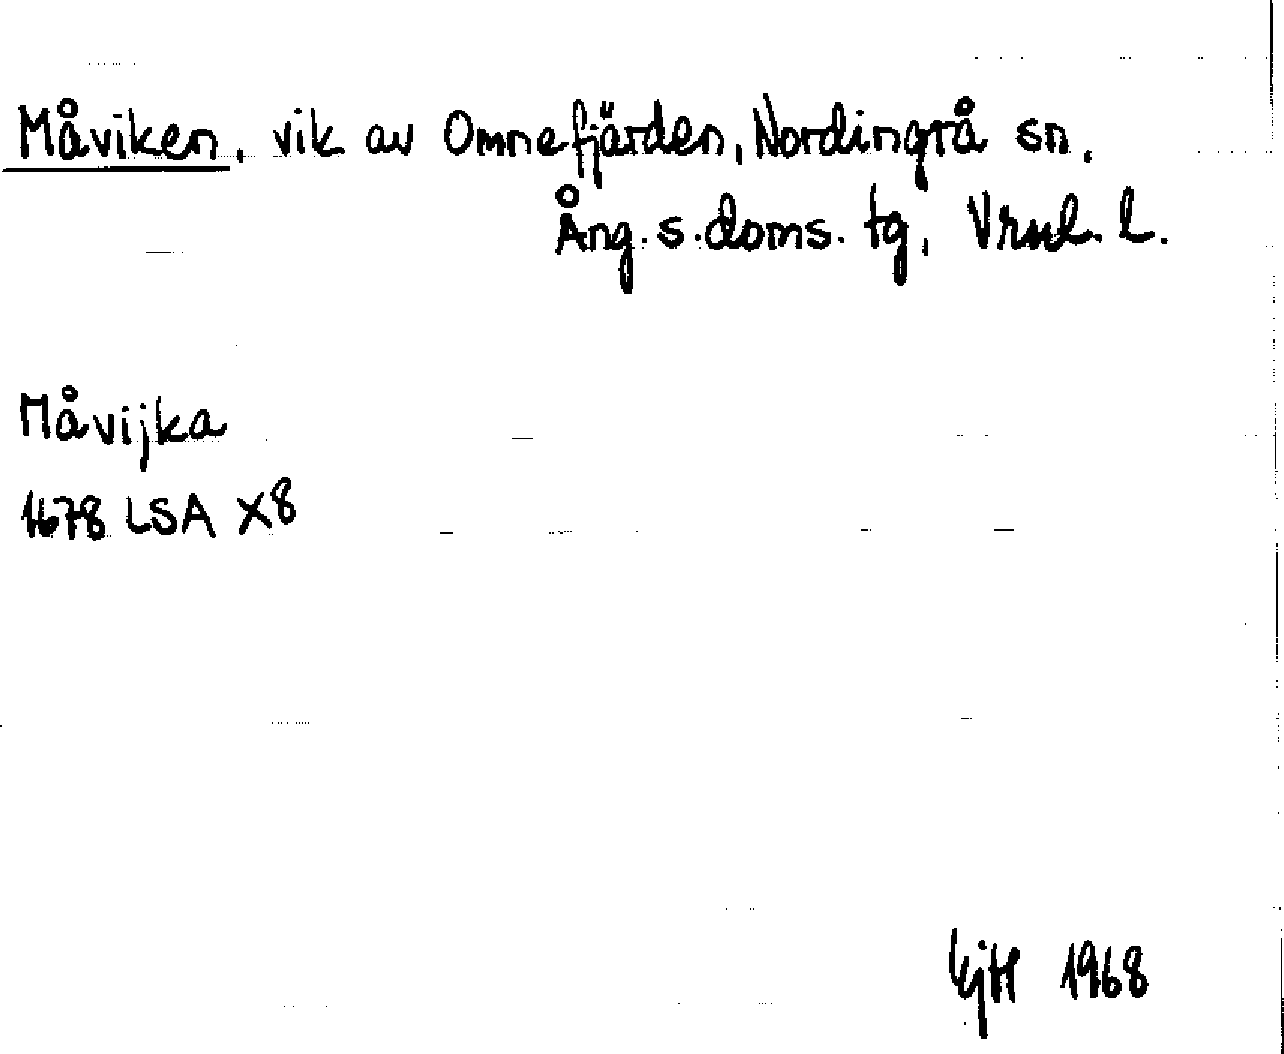 Måviken, vik av Omnefjärden, Nordingrå sn.
Ång. s. doms. tg, Vrnl. l.
Måvijka
1678 LSA X8
1968